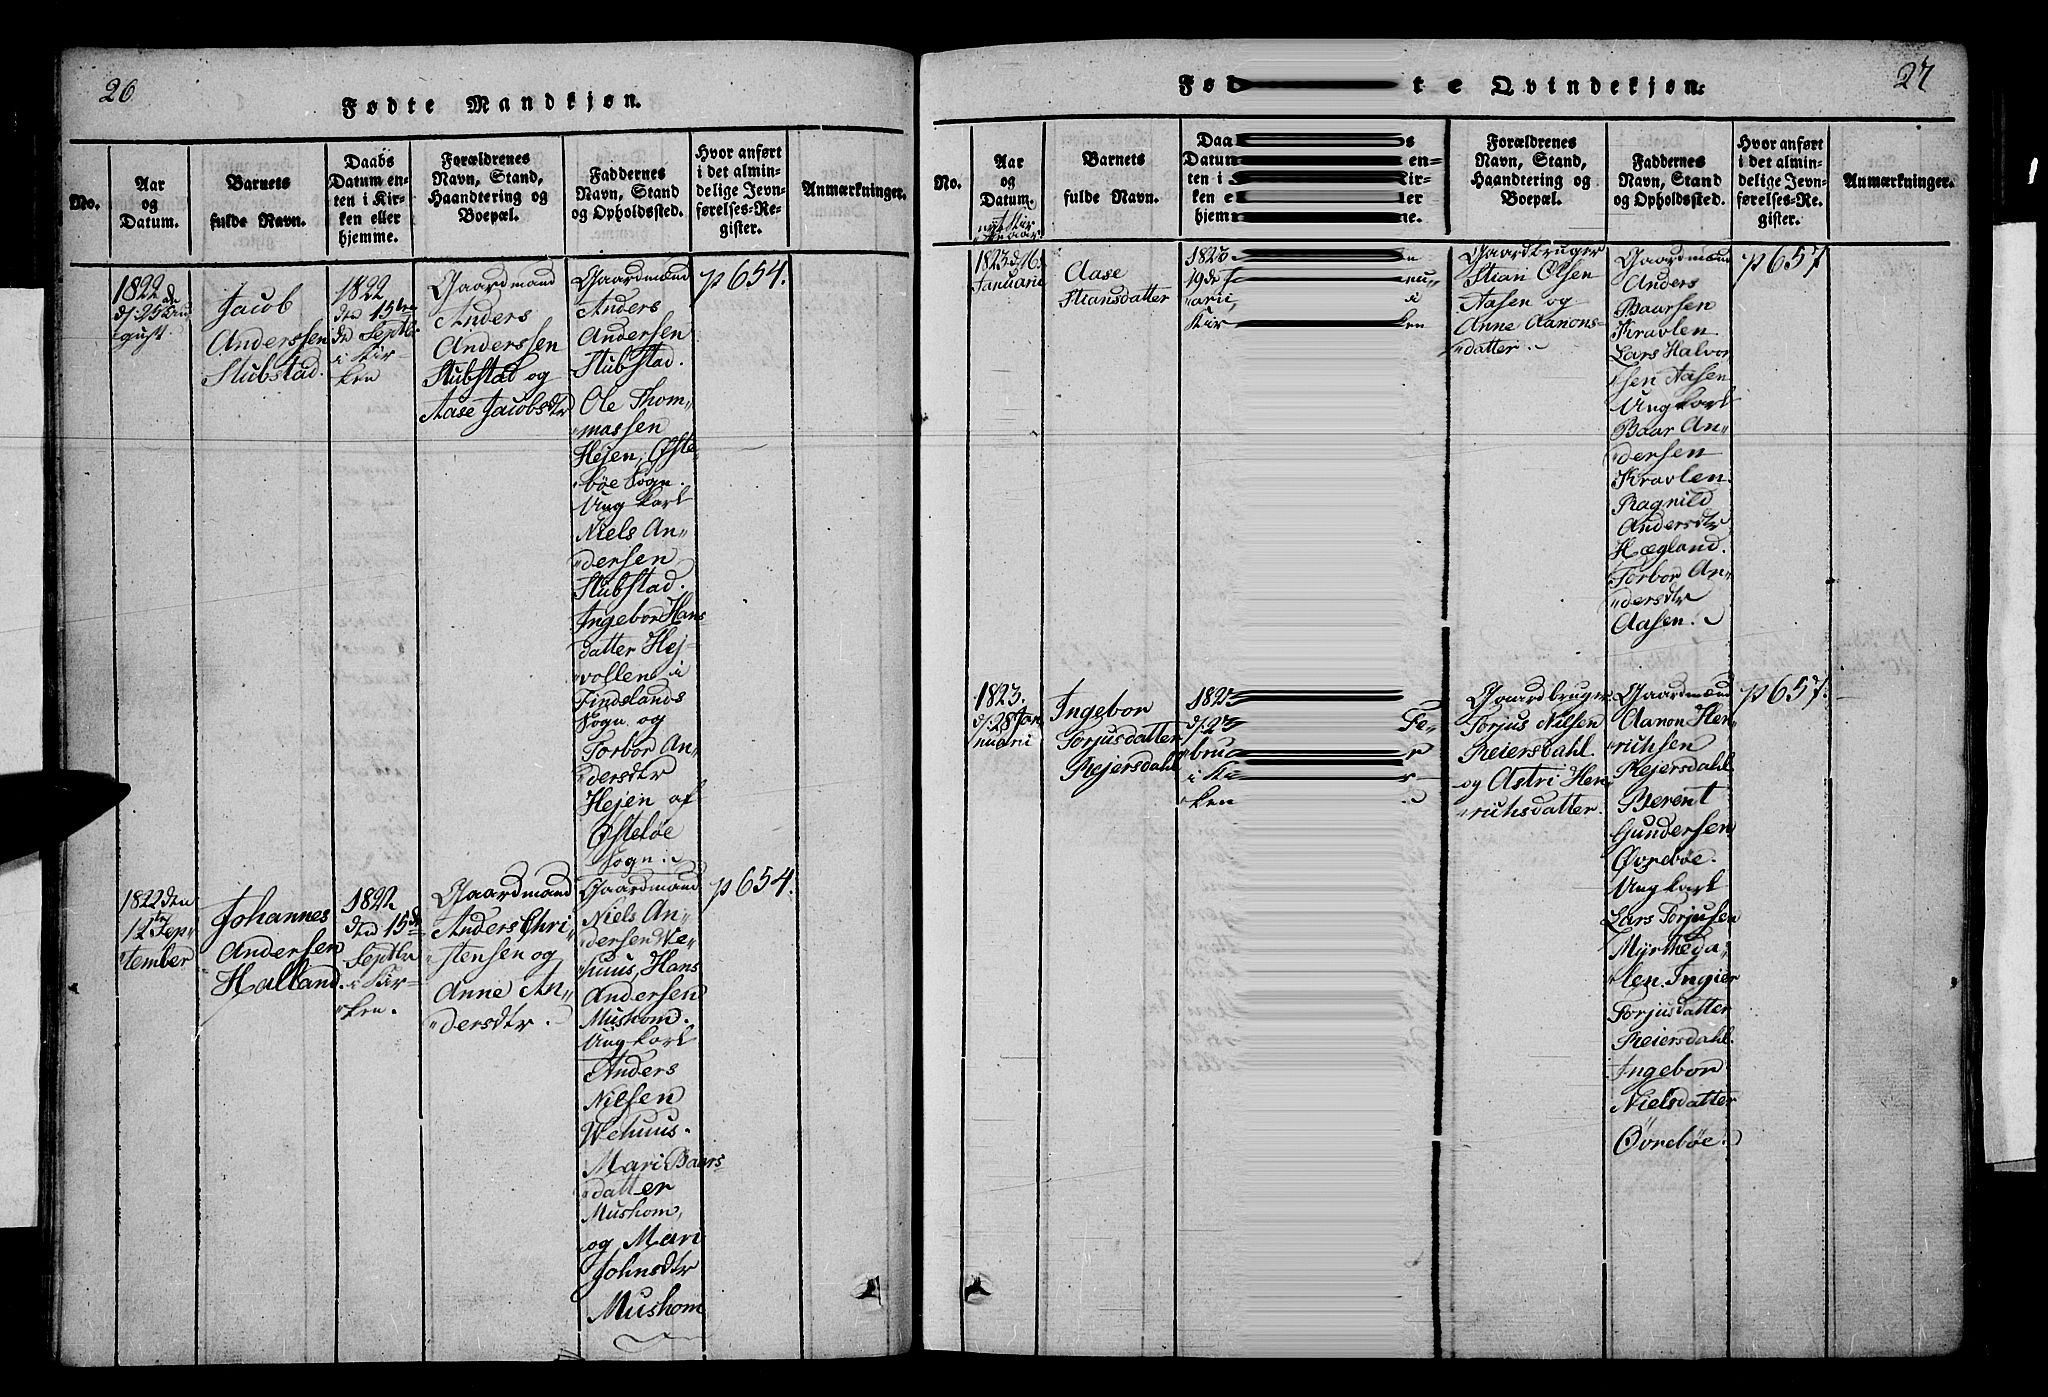 26
Fødte Mandkjøn.
No.
Aar
og
Datum.
Barnets
fulde Navn.
Daabs
Datum en-
ten i Kir-
ken eller
hjemme.
Forældrenes
Navn, Stand,
Haandtering og
Boepæl.
Faddernes
Navn, Stand
og Opholdssted.
Hvor anført
i det almin-
delige Jevn-
førelses-Re-
gister.
Anmærkninger.
1822
d: 25 Au-
gust.
Jacob
Anderssen
Stubstad.
1822
den 15
Septbr
i Kir-
ken
Gaardmand
Anders
Anderssen
Stubstad og
Aase Jacobsdtr
Gaardmænd
Anders
Andersen
Stubstad.
Ole Thom-
massen
Hejen, Øste-
bøe Sogn.
Ung karl
Niels An-
dersen
Stubstad.
Ingebor Hans
datter Hej-
vollen i
Findslands
Sogn og
Torbor An-
dersdtr
Hejen af
Østebøe
Sogn.
p 654.
1822 den
12te Sep-
tember
Johannes
Andersen
Halland.
1822
den 15de
Septbr
i Kir-
ken.
Gaardmand
Anders Chri-
stensen og
Anne An-
dersdtr.
Gaardmænd
Niels An-
dersen We-
huus, Hans
Andersen
Mushom.
Ung karl
Anders
Nilsen
Wehuus.
Mari Baars-
datter
Mushom,
og Mari
Johnsdtr
Mushom
p 654.
27
Fød te Qvindekjøn.
No.
Aar
og
Datum.
nyt Kir
keaar
Barnets
fulde Navn.
Daa s
Datum en-
ten i Kir-
ken e ler
hjem ne.
Forældrenes
Navn, Stand,
Haandtering og
Boepæl.
Faddernes
Navn, Stand
og Opholdssted.
Hvor anført
i det almin-
delige Jevn-
førelses-Re-
gister.
Anmærkninger.
1823 d: 16
Januarii
Aase
Stiansdatter
1823
19de J nu-
arii, i
Kir ken
Gaardbruger
Stian Olsen
Aasen og
Anne Aanons-
datter.
Gaardmænd
Anders
Baarsen
Kravlen
Lars Halvor
sen Aasen
Ung karl
Baar An-
dersen
Kravlen.
Ragnild
Andersdtr
Hægland.
Torbor An-
dersdtr
Aasen.
p 657
1823.
d: 28 Jan
nuarii
Ingebor
Torjusdatter
Rejersdahl
1823
d: 23 Fe-
bru r
i Ki r-
ken
Gaardbruger
Torjus Nilsen
Reiersdahl.
og Astri Hen
richsdatter.
Gaardmænd
Aanon Hen-
richsen
Rejersdahl
Berent
Gundersen
Øvrebøe.
Ung karl
Lars Torjusen
Myrhega-
len. Ingier
Torjusdatter
Reiersdahl.
Ingebor
Nielsdatter
Øvrebøe.
p 657.